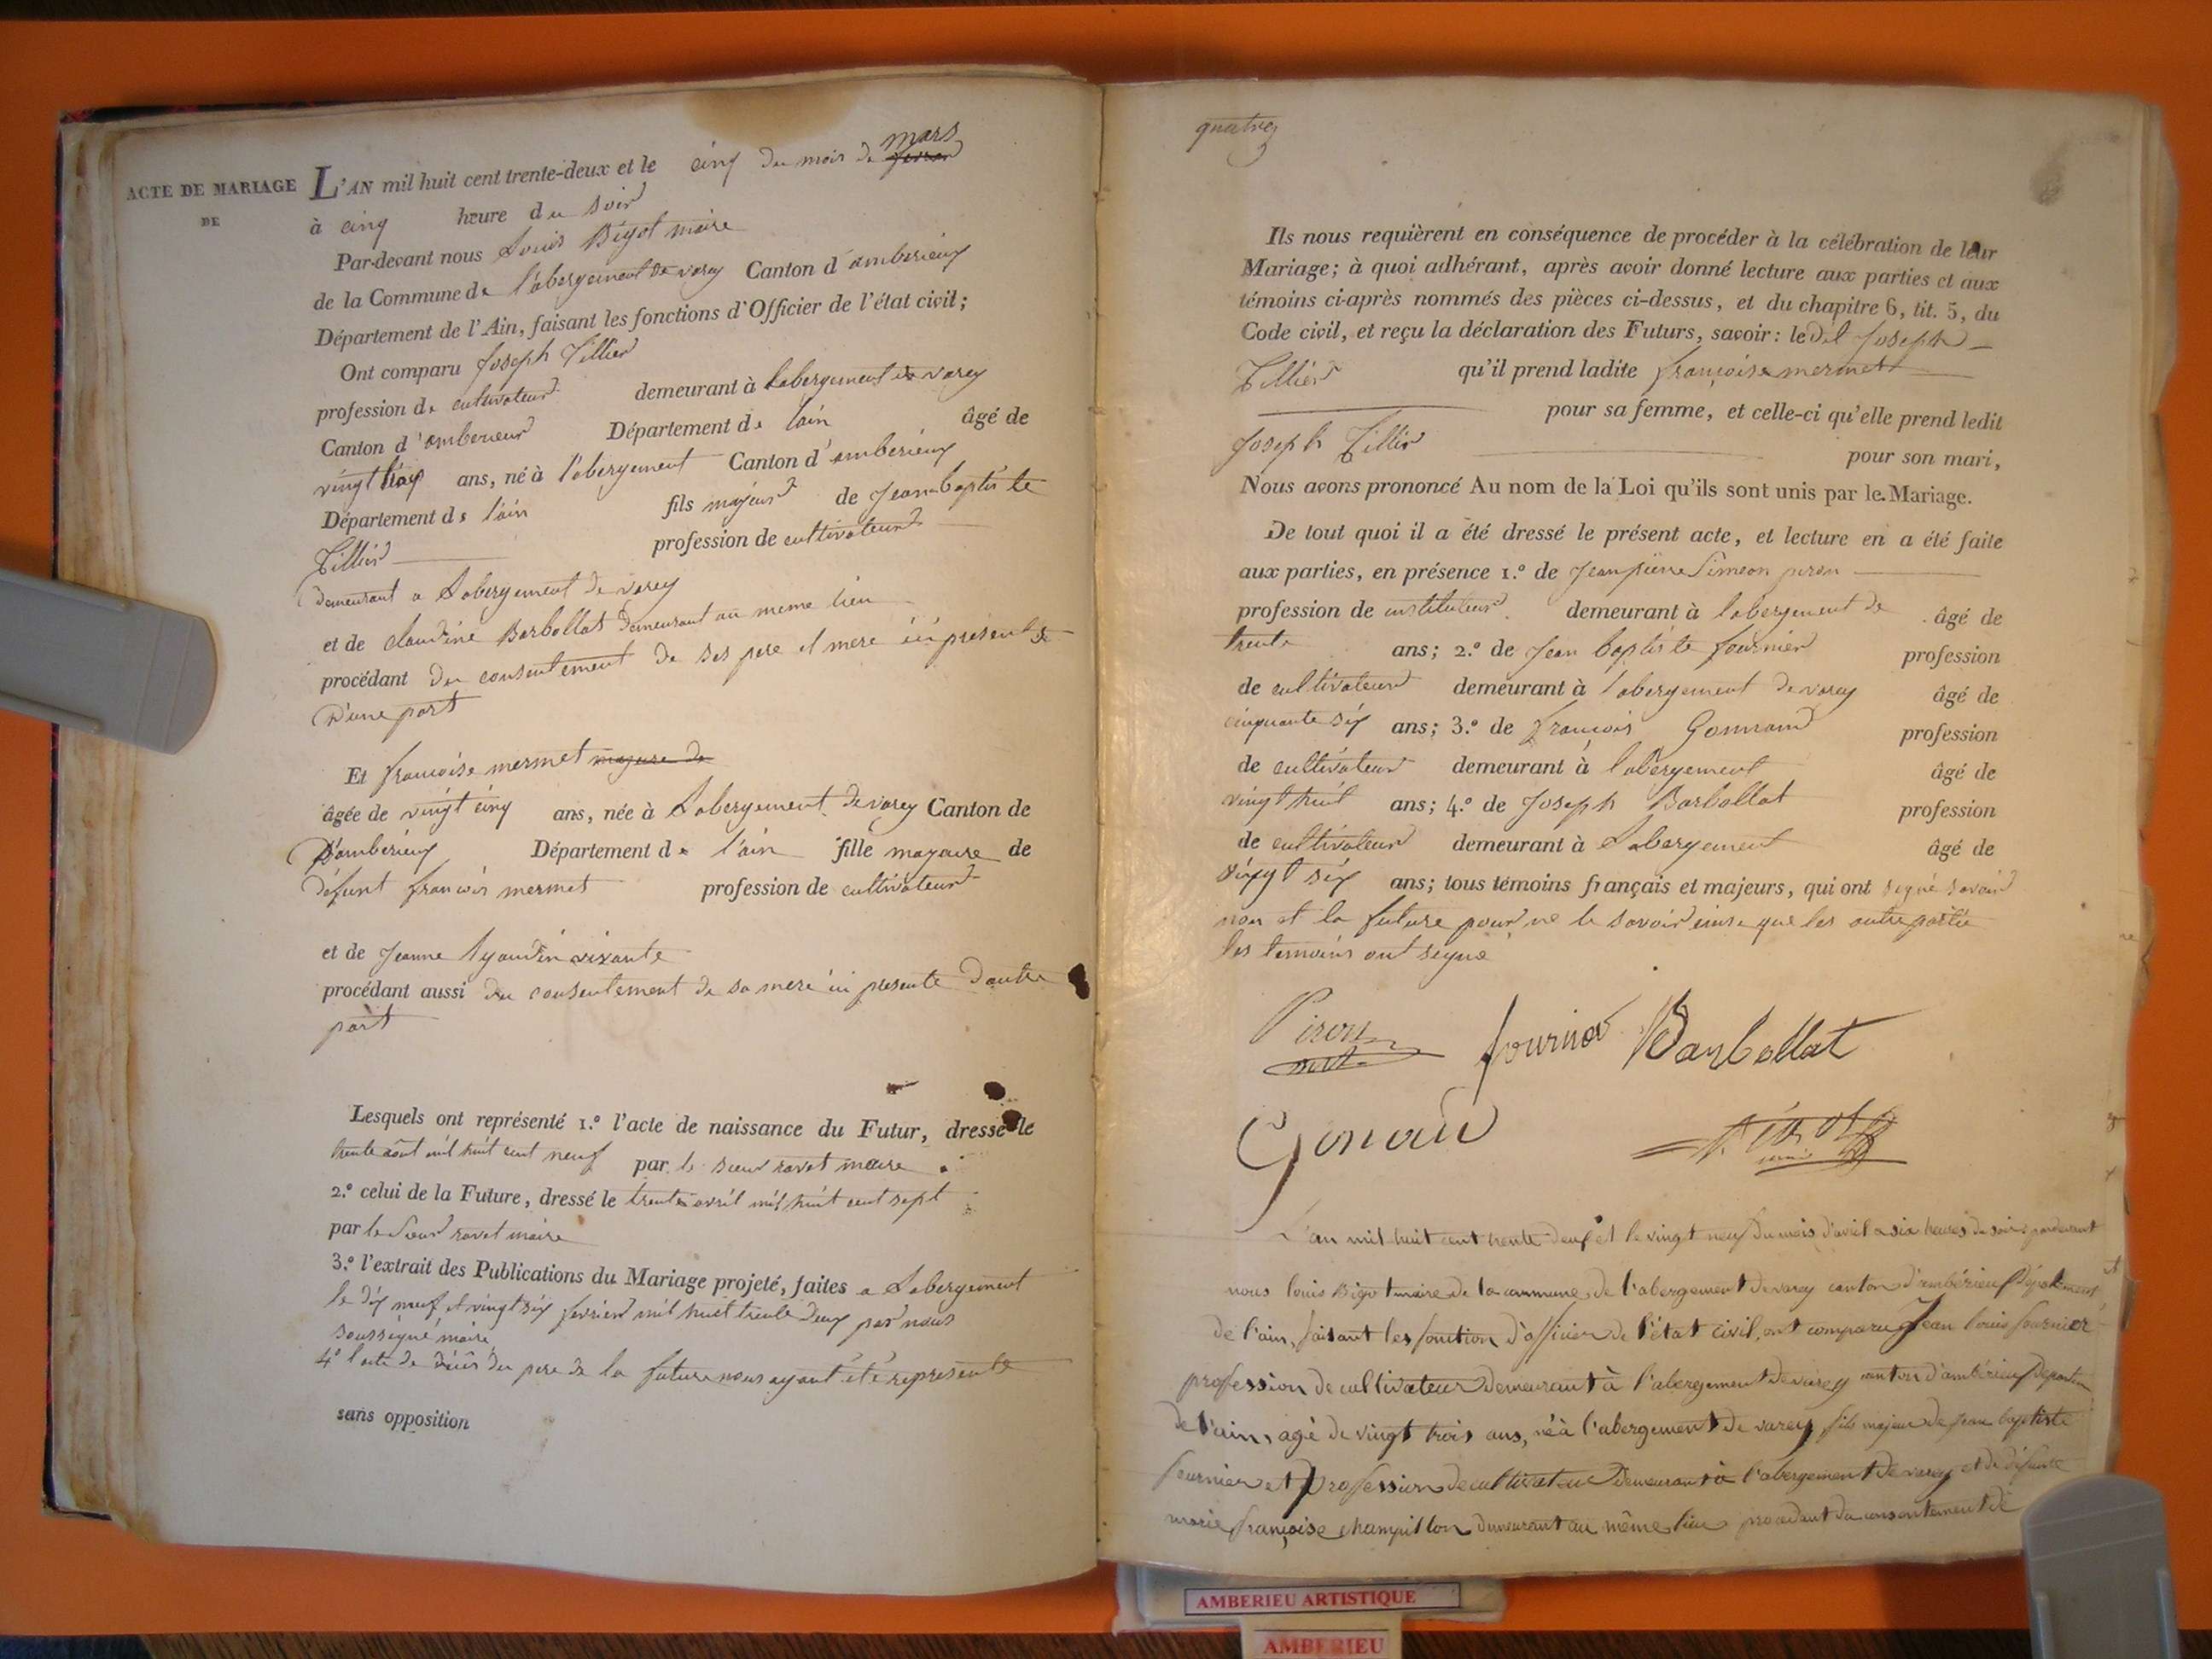 ACTE DE MARIAGE
DE
L'AN mil huit cent trente-deux et le cinq du mois de mars
à cinq heure du soir
Par-devant nous Louis Bigot maire
de la Commune de l'abergement de varey Canton d'amberieux
Département de l'Ain, faisant les fonctions d'Officier de l'état civil;
Ont comparu Joseph Tillier
profession de cultivateur demeurant à Labergement de varey
Canton d'amberieux Département de lain âgé de
vingt ans, né à l'abergement Canton d'amberieux
Département de l'ain fils majeur de Jean baptiste
Tillier profession de cultivateur
demeurant a Labergement de varey
et de claudine Barbollat demeurant au meme lieu
procédant du consentement de ses pere et mere ici presents
D'une part
Et françoise mermet majeure de
âgée de vingt cinq ans, née à Labergement de varey Canton de
D'amberieux Département de l'ain fille majeure de
défunt françois mermet profession de cultivateur
et de Jeanne vivante
procédant aussi du consentement de sa mere ici presente Dautre
part
Lesquels ont représenté 1.º l'acte de naissance du Futur, dressé le
trente aout mil huit cent neuf par le sieur ravet maire
2.º celui de la Future, dressé le trente avril mil huit cent sept
par le sieur ravet maire
3.º l'extrait des Publications du Mariage projeté, faites a Labergement
le dix neuf et vingt six fevrier mil huit trente deux par nous
soussigné maire
4º lacte de décès du pere de la future nous ayant été represente
sans opposition
quatre
Ils nous requièrent en conséquence de procéder à la célébration de leur
Mariage; à quoi adhérant, après avoir donné lecture aux parties et aux
témoins ci-après nommés des pièces ci-dessus, et du chapitre 6, tit. 5, du
Code civil, et reçu la déclaration des Futurs, savoir: le dit Joseph
Tillier qu'il prend ladite françoise mermet
pour sa femme, et celle-ci qu'elle prend ledit
Joseph Tillier pour son mari,
Nous avons prononcé Au nom de la Loi qu'ils sont unis par le Mariage.
De tout quoi il a été dressé le présent acte, et lecture en a été faite
aux parties, en présence 1.º de Jean pierre Simeon piron
profession de instituteur demeurant à labergement de âgé de
trente ans; 2.º de Jean baptiste fournier profession
de cultivateur demeurant à labergement de varey âgé de
cinquante six ans; 3.º de françois Gonnand profession
de cultivateur demeurant à labergement âgé de
vingt huit ans; 4.º de Joseph Barbollat profession
de cultivateur demeurant à Labergement âgé de
vingt six ans; tous témoins français et majeurs, qui ont signé savoir
non et la future pour ne le savoir que les autre partie
les temoins ont signé
Piron fournier Barbollat
Gonnand Bigot
L'an mil huit cent trente deux et le vingt neuf du mois d'avril a six heures du soir pardevant
nous louis Bigot maire de la commune de l'abergement de varey canton d'ambérieux Département
de l'ain, faisant les fonction d'officier de l'état civil, ont comparu Jean louis fournier
profession de cultivateur demeurant à l'abergement de varey canton d'ambérieux Departem
de l'ain, agé de vingt trois ans, né à l'abergement de varey fils majeur de jean baptiste
fournier et profession de cultivateur Demeurant à l'abergement de varey et de défunte
marie françoise champillon demeurant au même lieu procédant du consentement de
AMBERIEU ARTISTIQUE
AMBERIEU